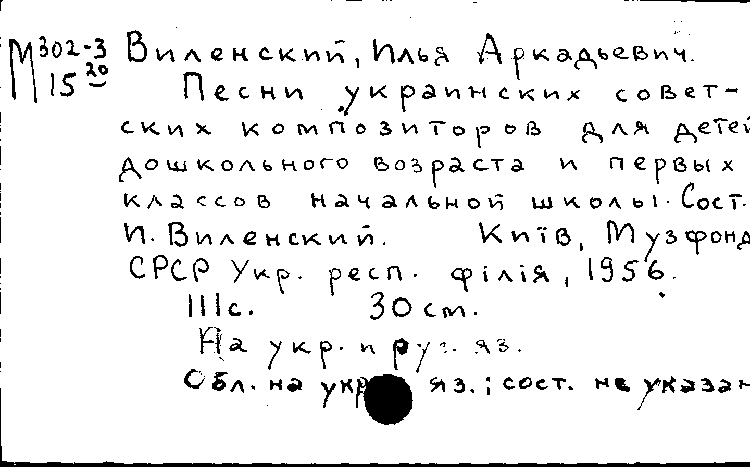 М302-3 Виленский, Илья Аркадьевич.
15 20 Песни украинских совет-
ских композиторов для детей
дошкольного возраста и первых
классов начальной школы. Сост.
И. Виленский. Київ, Музфонд
СРСР Укр. респ. філія, 1956.
111с. 30 см.
На укр. и рус. яз.
Обл. на укр. яз.; сост. не указан